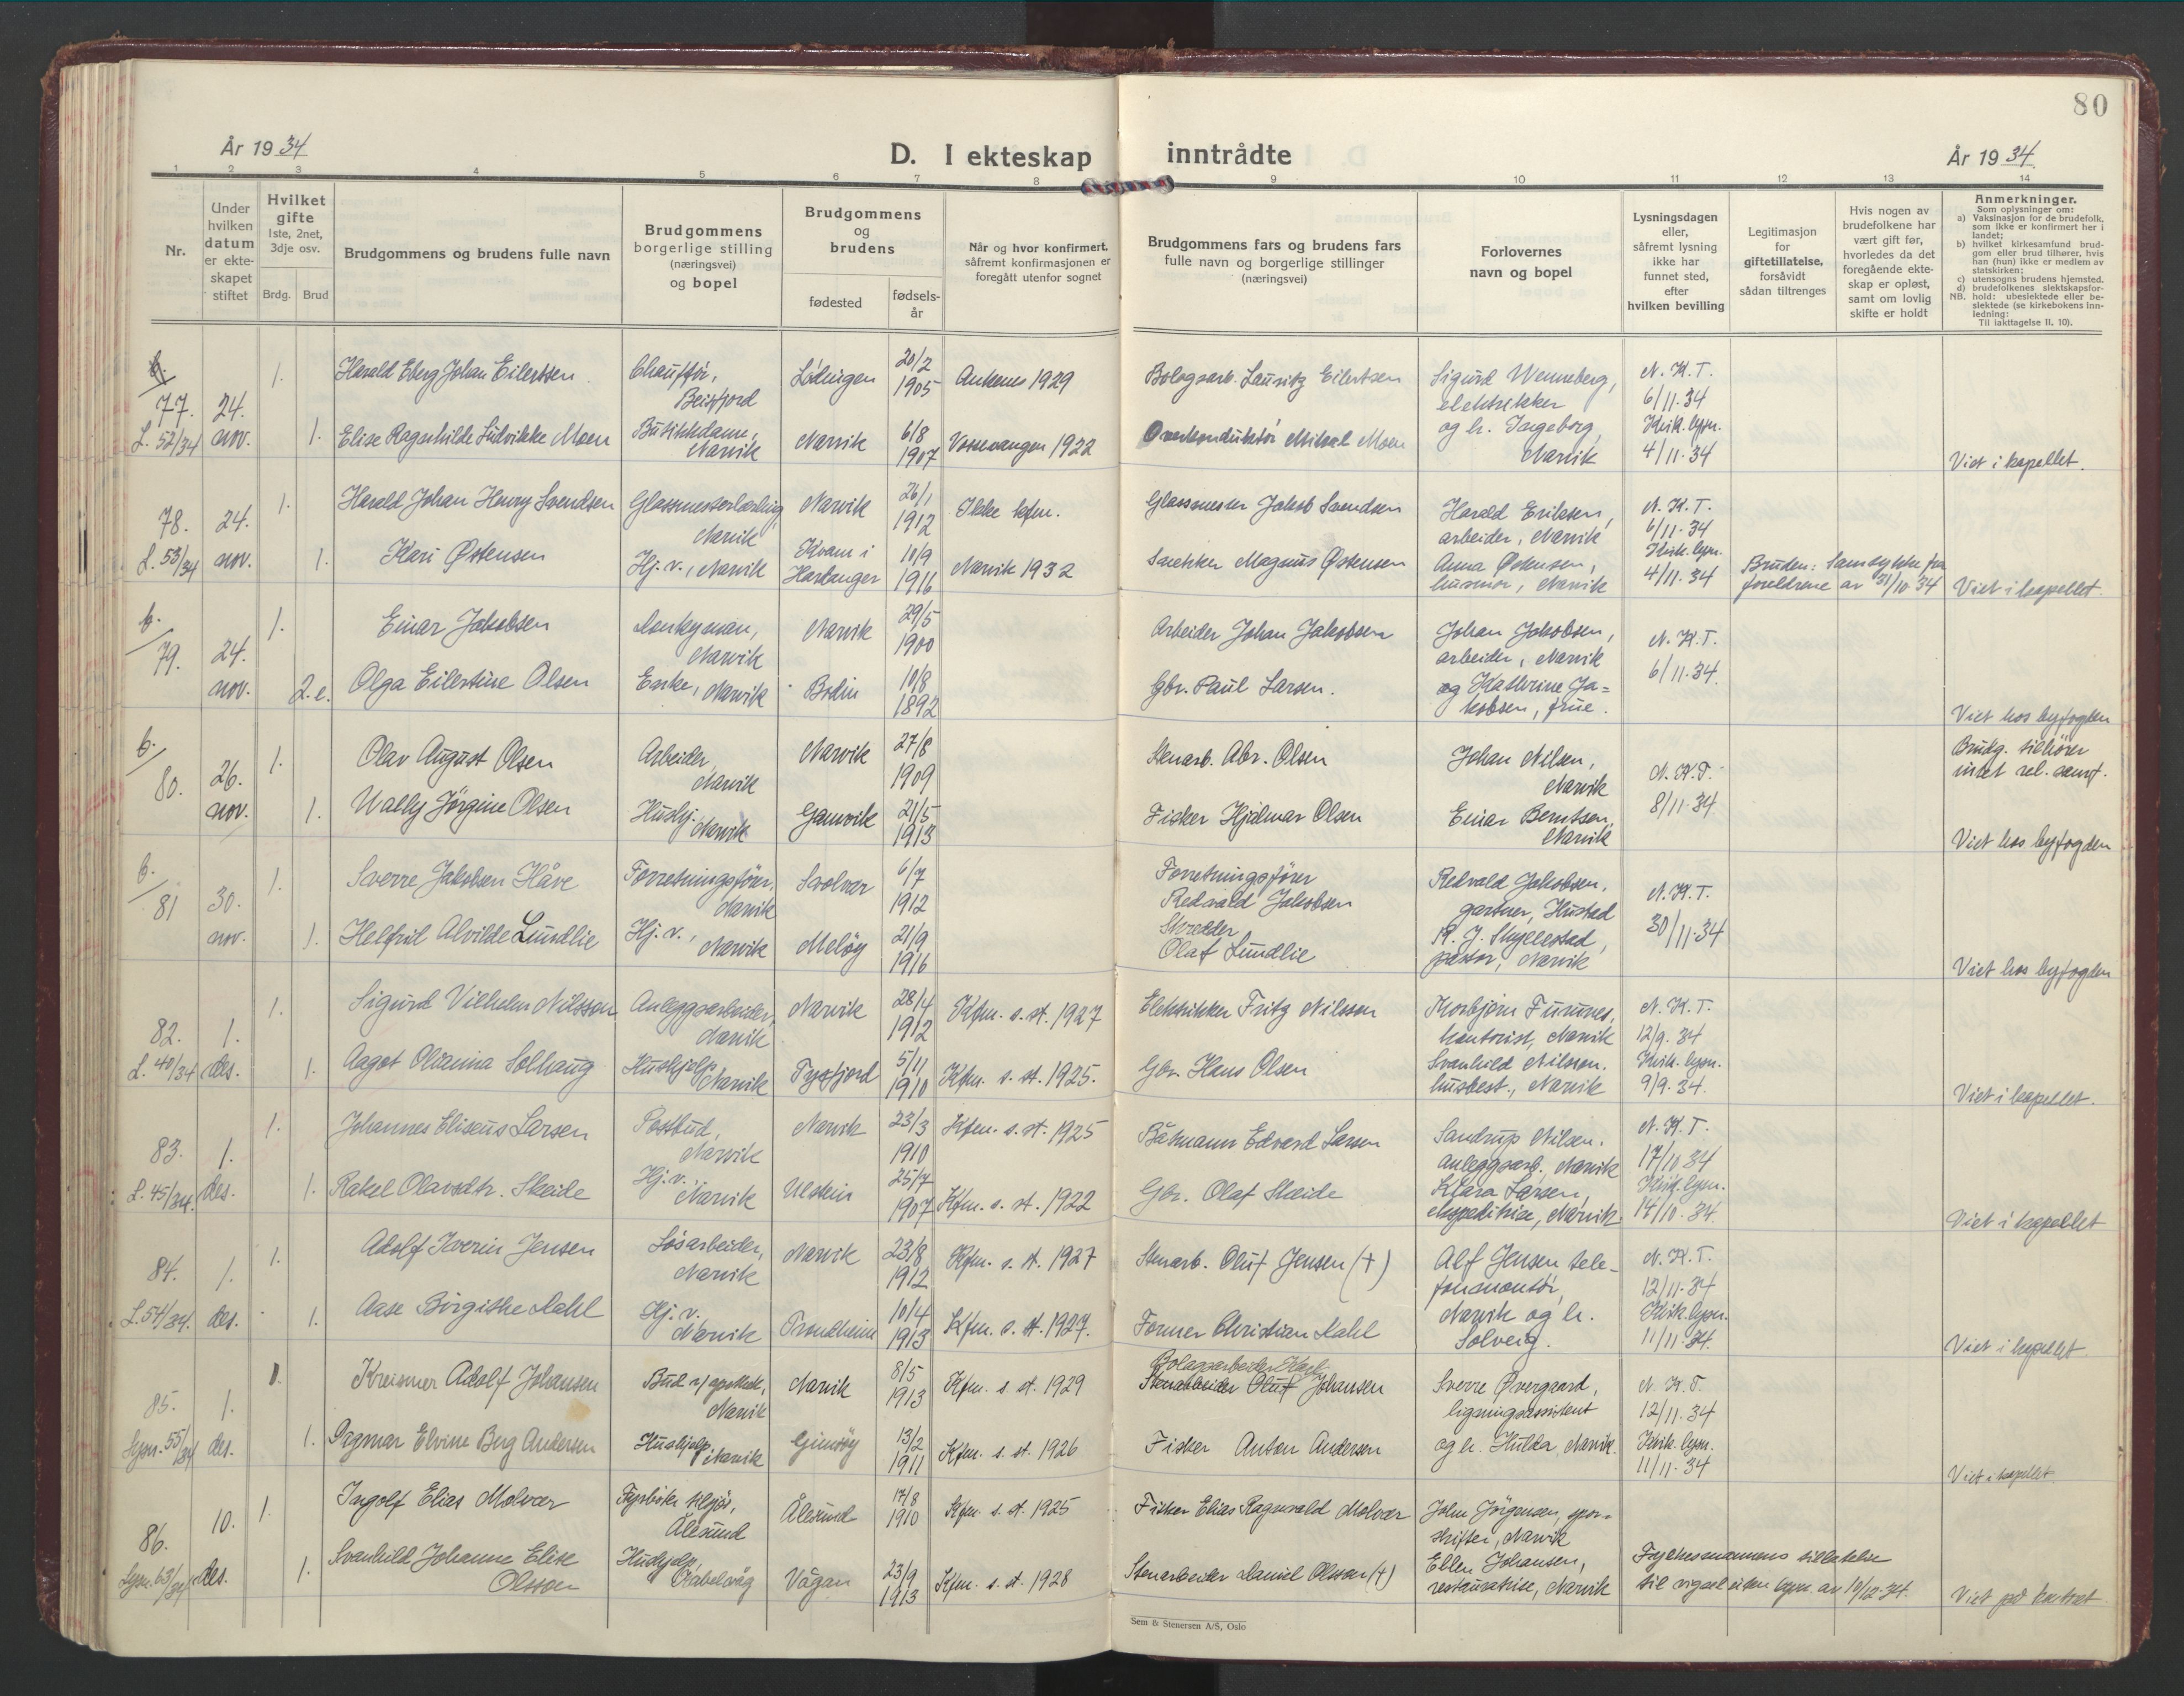 80
År 1934
D. I ekteskap inntrådte
År 1934.
1 2 3 4 5 6 7 8 9 10 11 12 13 14
Nr.
Under hvilken datum er ekteskapet stiftet
Hvilket gifte 1ste, 2net, 3dje osv.
Brdg. Brud
Brudgommens og brudens fulle navn
Brudgommens borgerlige stilling (næringsvei) og bopel
Brudgommens og brudens
fødested
fødselsår
Når og hvor konfirmert, såfremt konfirmasjonen er foregått utenfor sognet
Brudgommens fars og brudens fars fulle navn og borgerlige stillinger (næringsvei)
Forlovernes navn og bopel
Lysningsdagen eller, såfremt lysning ikke har funnet sted, efter hvilken bevilling
Legitimasjon for giftetillatelse, forsåvidt sådan tiltrenges
Hvis nogen av brudefolkene har vært gift før, hvorledes da det foregående ekteskap er opløst, samt om lovlig skifte er holdt
Anmerkninger.
Som oplysninger om:
a) Vaksinasjon for de brudefolk, som ikke er konfirmert her i landet;
b) hvilket kirkesamfund brudgom eller brud tilhører, hvis han (hun) ikke er medlem av statskirken;
c) utensogns brudens hjemsted.
d) brudefolkenes slektskapsforhold: ubeslektede eller beslektede (se kirkebokens innledning:
NB. Til iakttagelse II. 10).
77. 24. 1. Harald Eberg Johan Eilertsen. Chauffør, Beisfjord Lødingen 20/2 1905 Ankenes 1929 Bologsarb. Lauritz Eilertsen Sigurd Wenneberg, elektrikker N. K. T. 6/11.34
L. 52/34 nov. 1. Elise Ragnhilde Ludvikke Moen Butikkdame, Narvik Narvik 6/8 1907 Vossevangen 1922 Overkonduktør Mikal Moen og h. Ingeborg, Narvik Kirk. lysn. 4/11.34 Viet i kapellet.
78. 24. 1. Harald Johan Henry Svendsen Glassmesterlærling, Narvik Narvik 26/1 1912 Ikke kfm. Glassmester Jakob Svendsen Harald Eriksen, arbeider, Narvik N. K. T. 6/11.34
L. 53/34 nov. 1. Kari Østensen Hj. v., Narvik Kvam i Hardanger 10/9 1916 Narvik 1932 Snekker Magnus Østensen Anna Østensen, husmor, Narvik Kirk. lysn. 4/11.34 Bruden: Samtykke fra foreldrene av 31/10.34 Viet i kapellet.
b. 79. 24. 1. Einar Jakobsen Donkeyman, Narvik Narvik 29/5 1900 Arbeider Johan Jakobsen Johan Jakobsen, arbeider, Narvik N. K. T. 6/11.34
nov. 2.e. Olga Eilertine Olsen Enke, Narvik Bodin 10/8 1892 Gbr. Paul Larsen. og Kathrine Jakobsen, frue. Viet hos byfogden
b. 80. 26. 1. Olav August Olsen Arbeider, Narvik Narvik 27/8 1909 Stenarb. Abr. Olsen Johan Nilsen, Narvik N. K. T. 8/11.34 Brudg. tilhører intet rel. samf.
nov. 1. Wally Jørgine Olsen Hushj. Narvik Gamvik 21/5 1913 Fisker Hjalmar Olsen Einar Berntsen, Narvik Viet hos byfogden
b. 81 30. 1. Sverre Jakobsen Håve Forretningsfører, Narvik Svolvær 6/7 1912 Forretningsfører Redvald Jakobsen Redvald Jakobsen, gartner, Hustad N. K. T. 30/11.34
nov. 1. Helfrid Alvilde Lundlie Hj. v., Narvik Meløy 21/9 1916 Skredder Olaf Lundlie pastor, Narvik Viet hos byfogden
82. 1. 1. Sigurd Vilhelm Nilsson Anleggsarbeider, Narvik Narvik 28/4 1912 Kfm. s. st. 1927 Elektrikker Fritz Nilsson Thorbjørn Furunes, kontorist, Narvik N. K. T. 12/9.34
L. 40/34 des. 1. Aagot Olianna Solhaug Hushjelp, Narvik Tysfjord 5/11 1910 Kfm. s. st. 1925. Gbr. Hans Olsen Svanhild Nilsson, husbest., Narvik Kirk. lysn. 9/9.34. Viet i kapellet.
83. 1. 1. Johannes Eliseus Larsen Postbud, Narvik Narvik 23/3 1910 Kfm. s. st. 1925 Båtmann Edvard Larsen Sandrup Nilsen, anleggsarb., Narvik N. K. T. 17/10 34
L. 45/34. des. 1. Rakel Olavsdtr. Skeide Hj. v., Narvik Ulstein 25/7 1907 Kfm. s. st. 1922 Gbr. Olaf Skeide Klara Larsen, ekspeditrise, Narvik Kirk. lysn. 14/10.34. Viet i kapellet
84. 1. 1. Adolf Iverin Jensen Løsarbeider, Narvik Narvik 23/8 1912 Kfm. s. st. 1927 Stenarb. Oluf Jensen (+) Alf Jensen telefonmontør, N. K. T. 12/11.34
L. 54/34. des. 1. Aase Birgithe Dahl Hj. v. Narvik Trondheim 10/4 1913 Kfm. s. st. 1927. Former Christian Dahl Narvik og h. Solveig. Kirk. lysn. 11/11.34. Viet i kapellet
85. 1. 1. Kreismer Adolf Johansen Bud v/ apothek, Narvik Narvik 8/5 1913 Kfm. s. st. 1929 Bolagsarbeider Karl Stenarbeider Oluf Johansen Sverre Øvergaard, ligningsassistent N. K. T. 12/11.34
Lysn. 55/34 des. 1. Dagmar Elvine Berg Andersen Hushjelp, Narvik Gimsøy 13/2 1911 Kfm. s. st. 1926 Fisker Anton Andersen og h. Hulda, Narvik. Kirk. lysn. 11/11.34 Viet i kapellet.
86. 10. 1. Ingolf Elias Molvær Fyrbøter tilsjøs, Ålesund Ålesund 17/8 1910 Kfm. s. st. 1925 Fisker Elias Ragnvald Molvær John Jørgensen, sporskifter, Narvik
Lysn. 63/34 des. 1. Svanhild Johanne Elise Olsson Hushjelp, Kabelvåg Vågan 23/9 1913 Kfm. s. st. 1928 Stenarbeider Daniel Olsson (+) Ellen Johansen, restauratrise, Narvik Fylkesmannens tillatelse til vigsel uten lysn. av 10/12.34. Viet på kontoret.
Sem & Stenersen A/S, Oslo